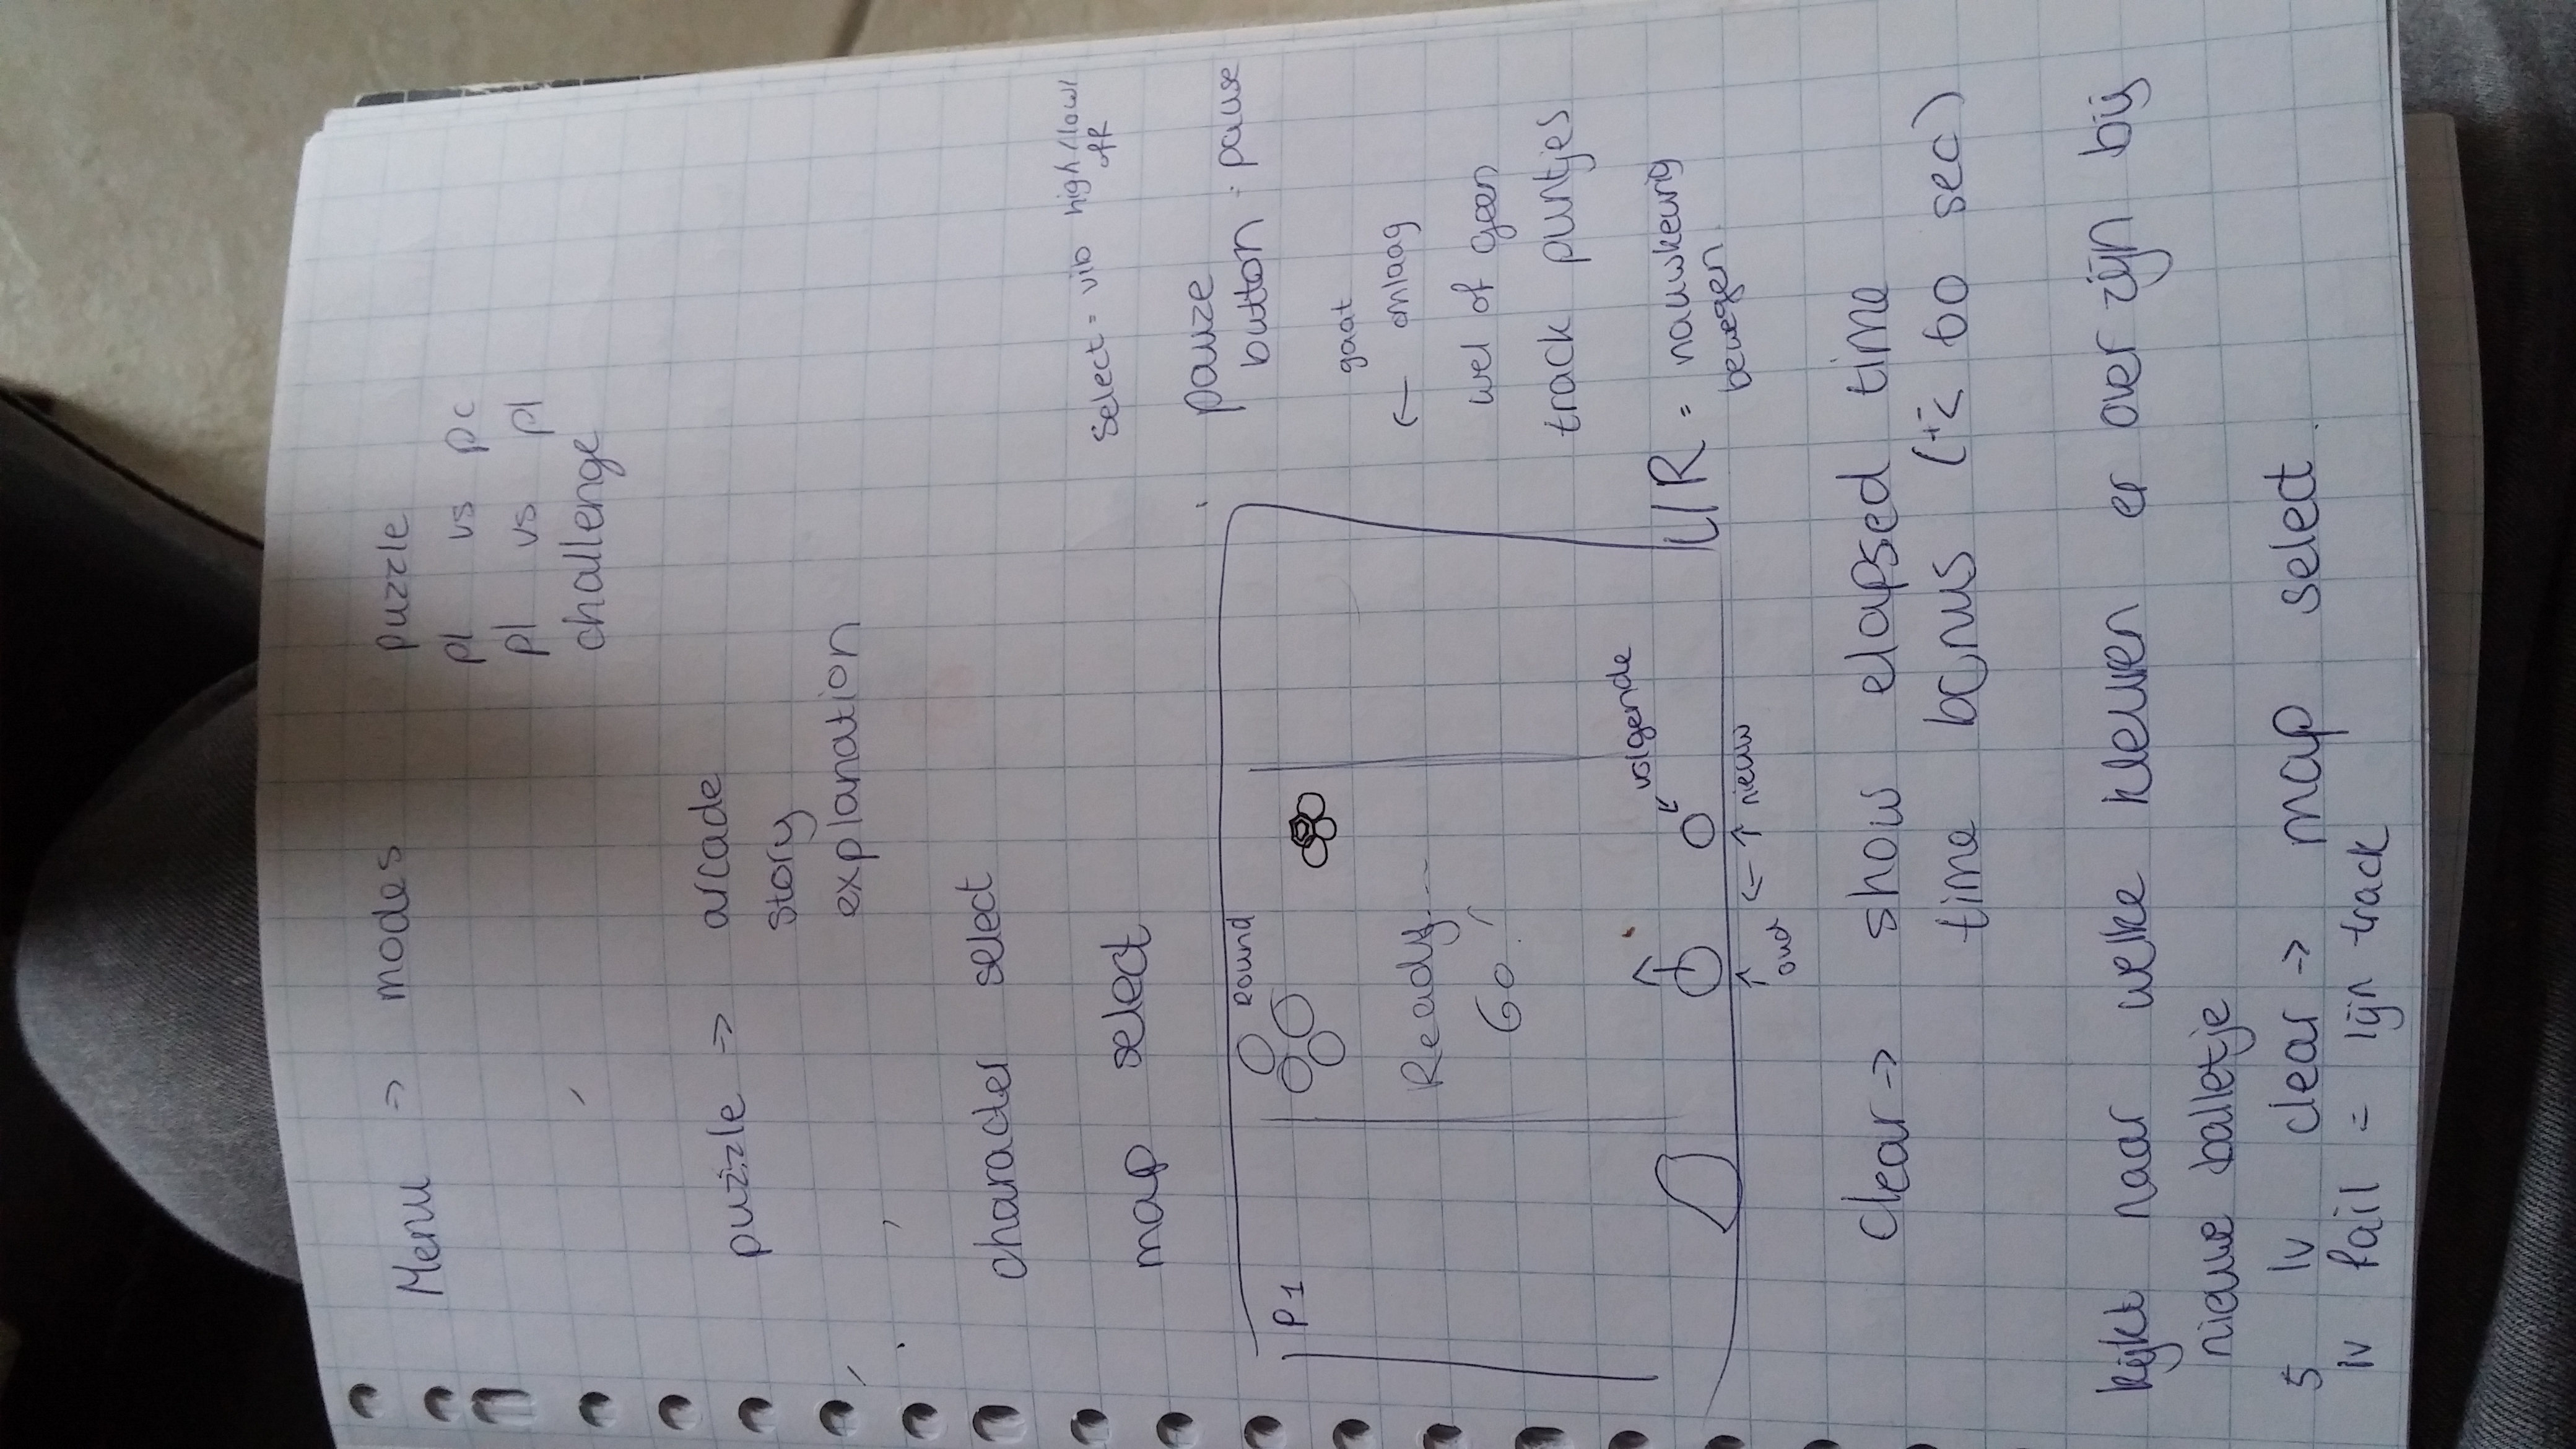 Menu → modes puzzle
pl vs pc
pl vs pl
challenge
puzzle → arcade
story
explanation
character select
map select
Select = vib high/low/
off
pauze
button = pause
P1
round
Ready...
Go!
gaat
← omlaag
wel of geen
track puntjes
volgende
L/R = nauwkeurig
bewegen
oud ← ↑ nieuw
clear → show elapsed time
time bonus (± < 60 sec)
kijkt naar welke kleuren er over zijn bij
nieuwe balletje
5 lv clear → map select.
lv fail = lijn track